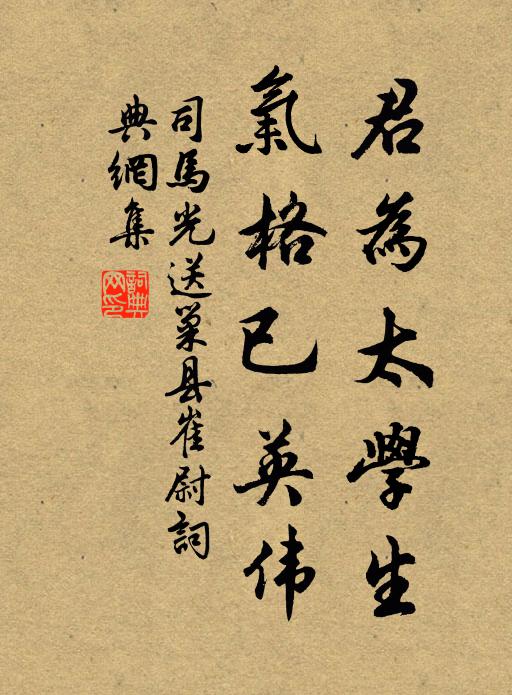 君為太學生
氣格已英伟
司馬光送巢县崔尉詞
典網集
詞典
网印